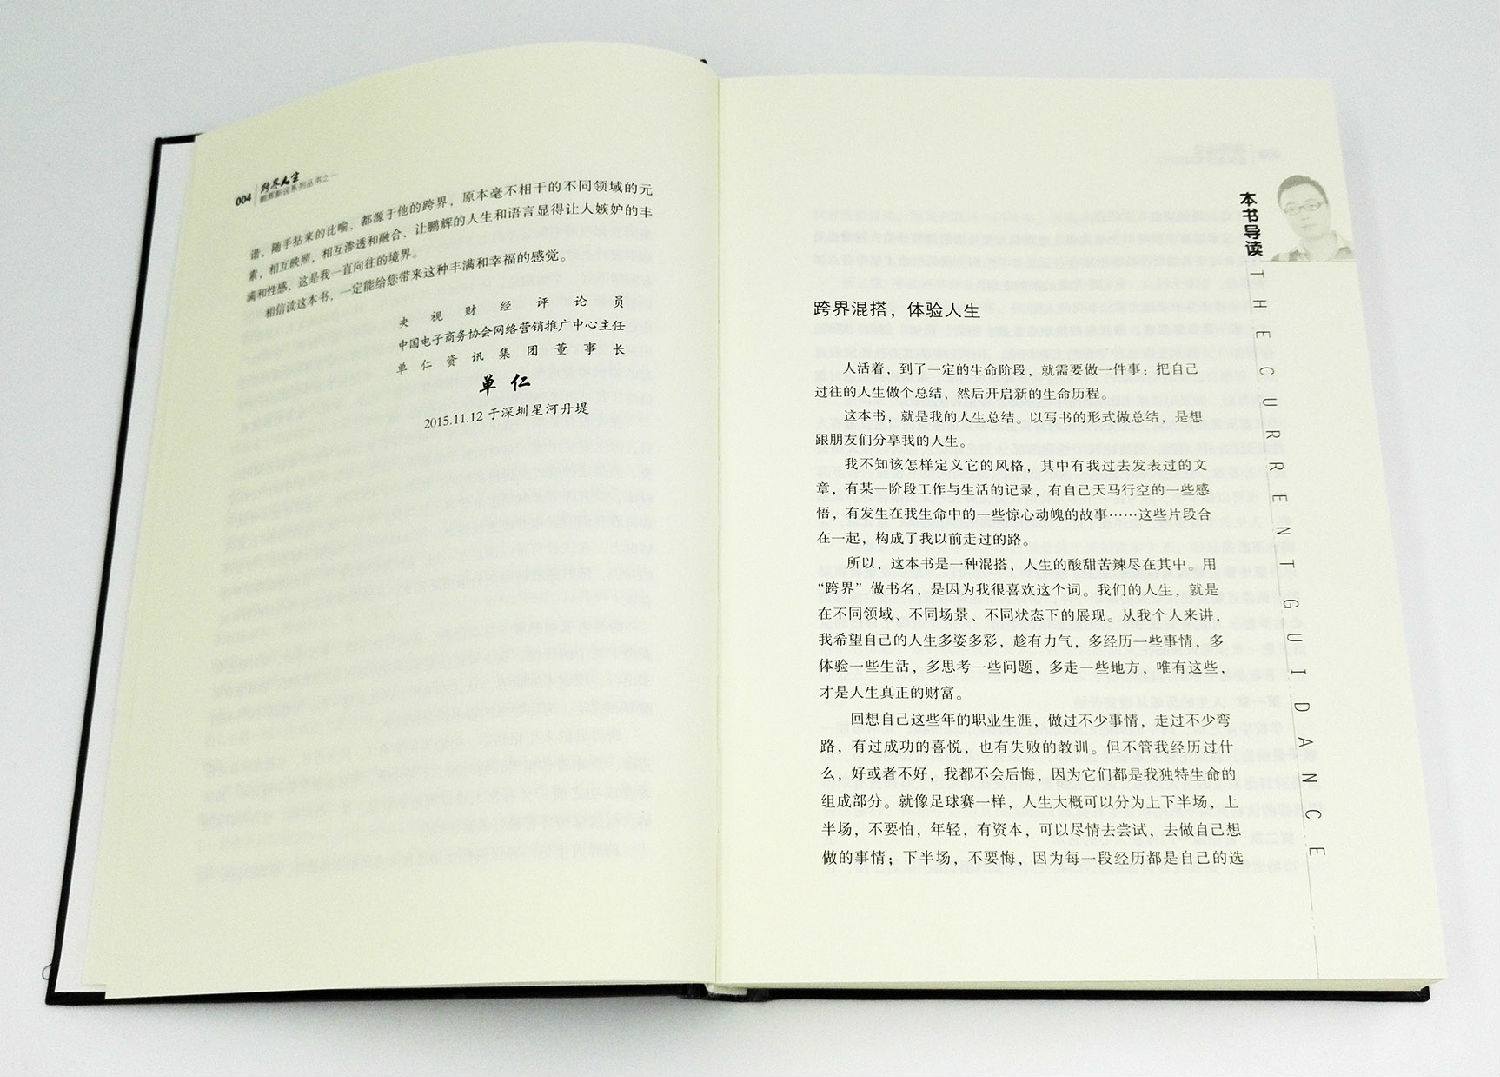 004
跨界人生
鹏辉新说系列丛书之一
谐，随手拈来的比喻，都源于他的跨界，原本毫不相干的不同领域的元
素，相互映照，相互渗透和融合，让鹏辉的人生和语言显得让人嫉妒的丰
满和性感，这是我一直向往的境界。
相信读这本书，一定能给您带来这种丰满和幸福的感觉。
央视财经评论员
中国电子商务协会网络营销推广中心主任
单仁资讯集团董事长
单仁
2015.11.12 于深圳星河丹堤
本书导读
THE CURRENT GUIDANCE
跨界混搭，体验人生
人活着，到了一定的生命阶段，就需要做一件事：把自己
过往的人生做个总结，然后开启新的生命历程。
这本书，就是我的人生总结。以写书的形式做总结，是想
跟朋友们分享我的人生。
我不知该怎样定义它的风格，其中有我过去发表过的文
章，有某一阶段工作与生活的记录，有自己天马行空的一些感
悟，有发生在我生命中的一些惊心动魄的故事……这些片段合
在一起，构成了我以前走过的路。
所以，这本书是一种混搭，人生的酸甜苦辣尽在其中。用
“跨界”做书名，是因为我很喜欢这个词。我们的人生，就是
在不同领域、不同场景、不同状态下的展现。从我个人来讲，
我希望自己的人生多姿多彩，趁有力气，多经历一些事情，多
体验一些生活，多思考一些问题，多走一些地方，唯有这些，
才是人生真正的财富。
回想自己这些年的职业生涯，做过不少事情，走过不少弯
路，有过成功的喜悦，也有失败的教训。但不管我经历过什
么，好或者不好，我都不会后悔，因为它们都是我独特生命的
组成部分。就像足球赛一样，人生大概可以分为上下半场，上
半场，不要怕，年轻，有资本，可以尽情去尝试，去做自己想
做的事情；下半场，不要悔，因为每一段经历都是自己的选